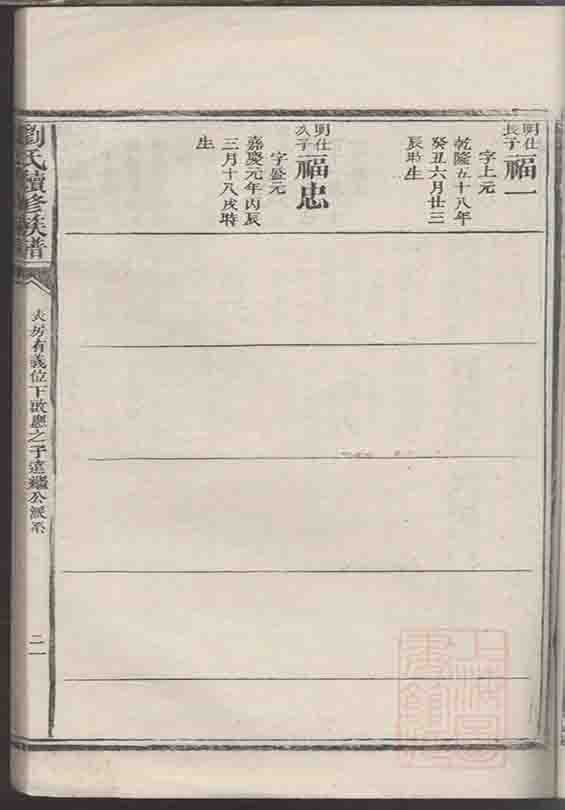 明仕
長子
福一
字上元
乾隆五十八年
癸丑六月廿三
辰時生
明仕
次子
福忠
字盛元
嘉慶元年丙辰
三月十八戌時
生
劉氏續修族譜
房有義位下啟應之子達繼公派系
二一
上海圖書館